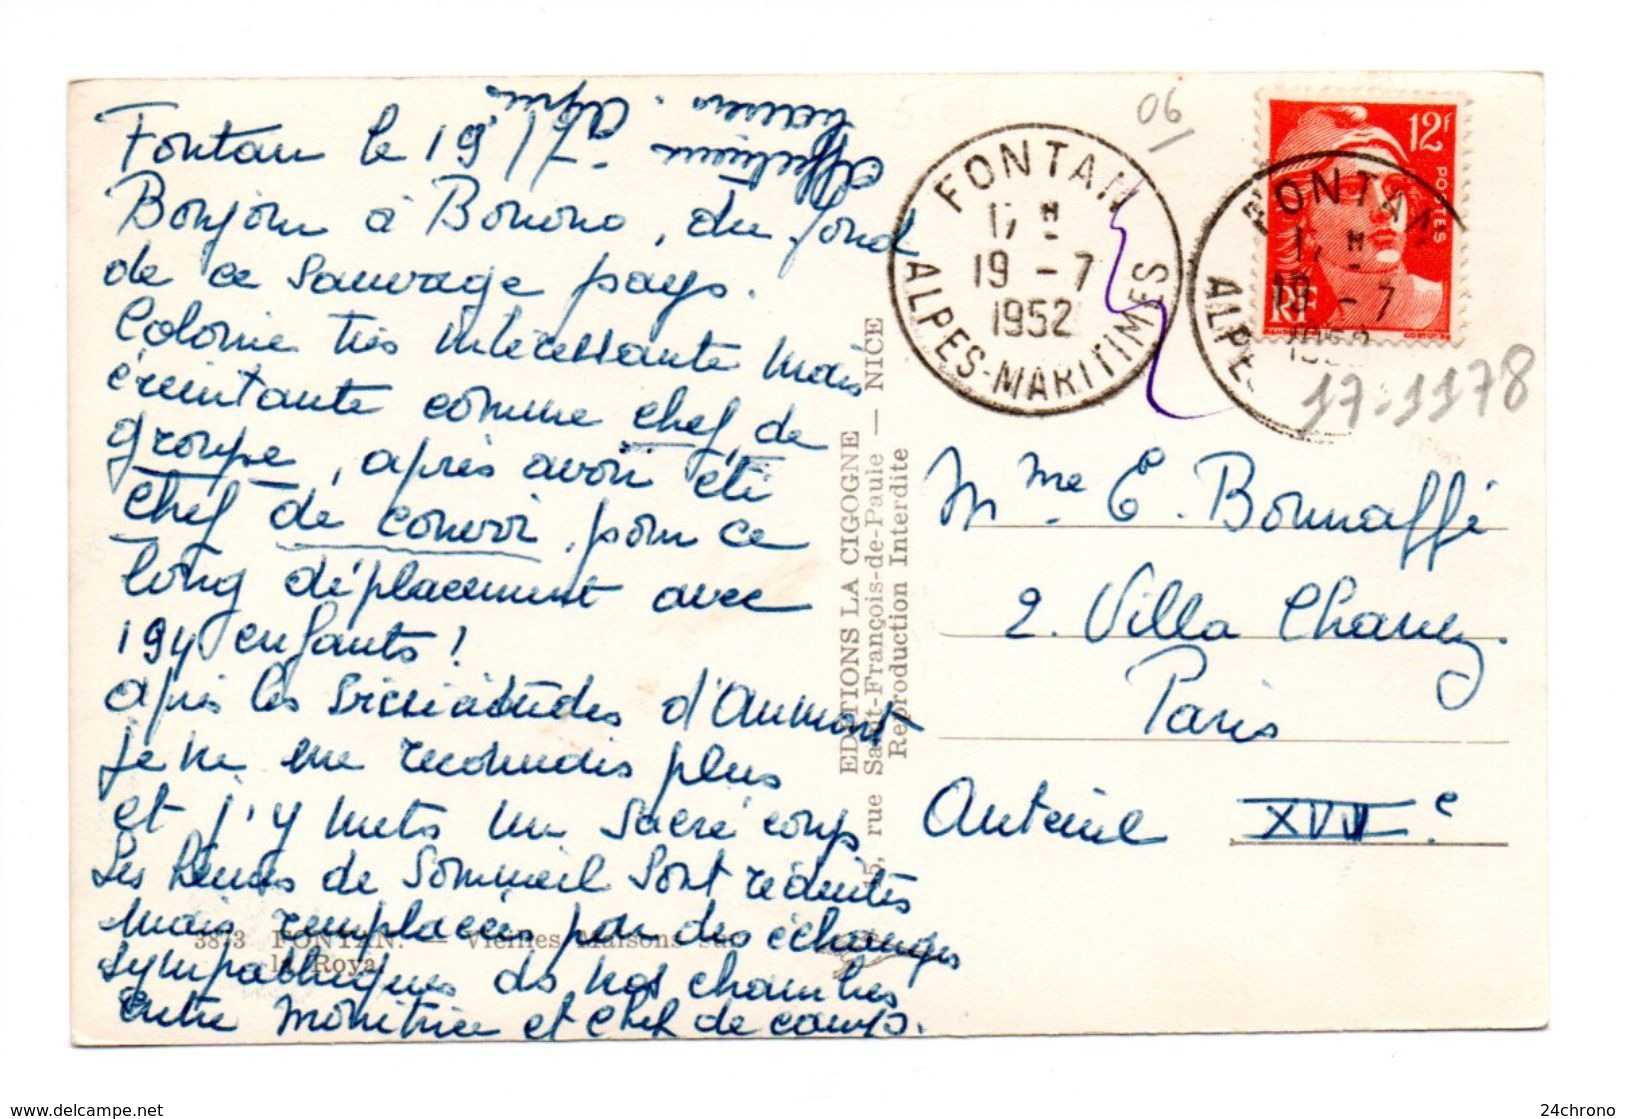 Fontan le 19/7
Bonjour à Bonono, du fond
de ce sauvage pays.
Colonie très intéressante mais
éreintante comme chef de
groupe, après avoir été
chef de convoi, pour ce
long déplacement avec
194 enfants !
après les d'Aumont
je ne me reconnais plus
et j'y mets un sacré corps
Les heures de sommeil sont réduites
mais remplacées par des échanges
sympathiques ds nos chambres
entre monitrice et chef de camp.
Affectueux
baisers.
3873 FONTAN. — Vieilles Maisons sur
la Roya
EDITIONS LA CIGOGNE
15, rue Saint-François-de-Paule — NICE
Reproduction Interdite
06
FONTAN
17 H
19 - 7
1952
ALPES-MARITIMES
FONTAN
17 H
19 - 7
1952
ALPE
12F
POSTES
RF
GANDON
17-1178
Mme E. Bonnaffé
2. Villa Chanez
Paris
Auteuil XVIe
24chrono
www.delcampe.net